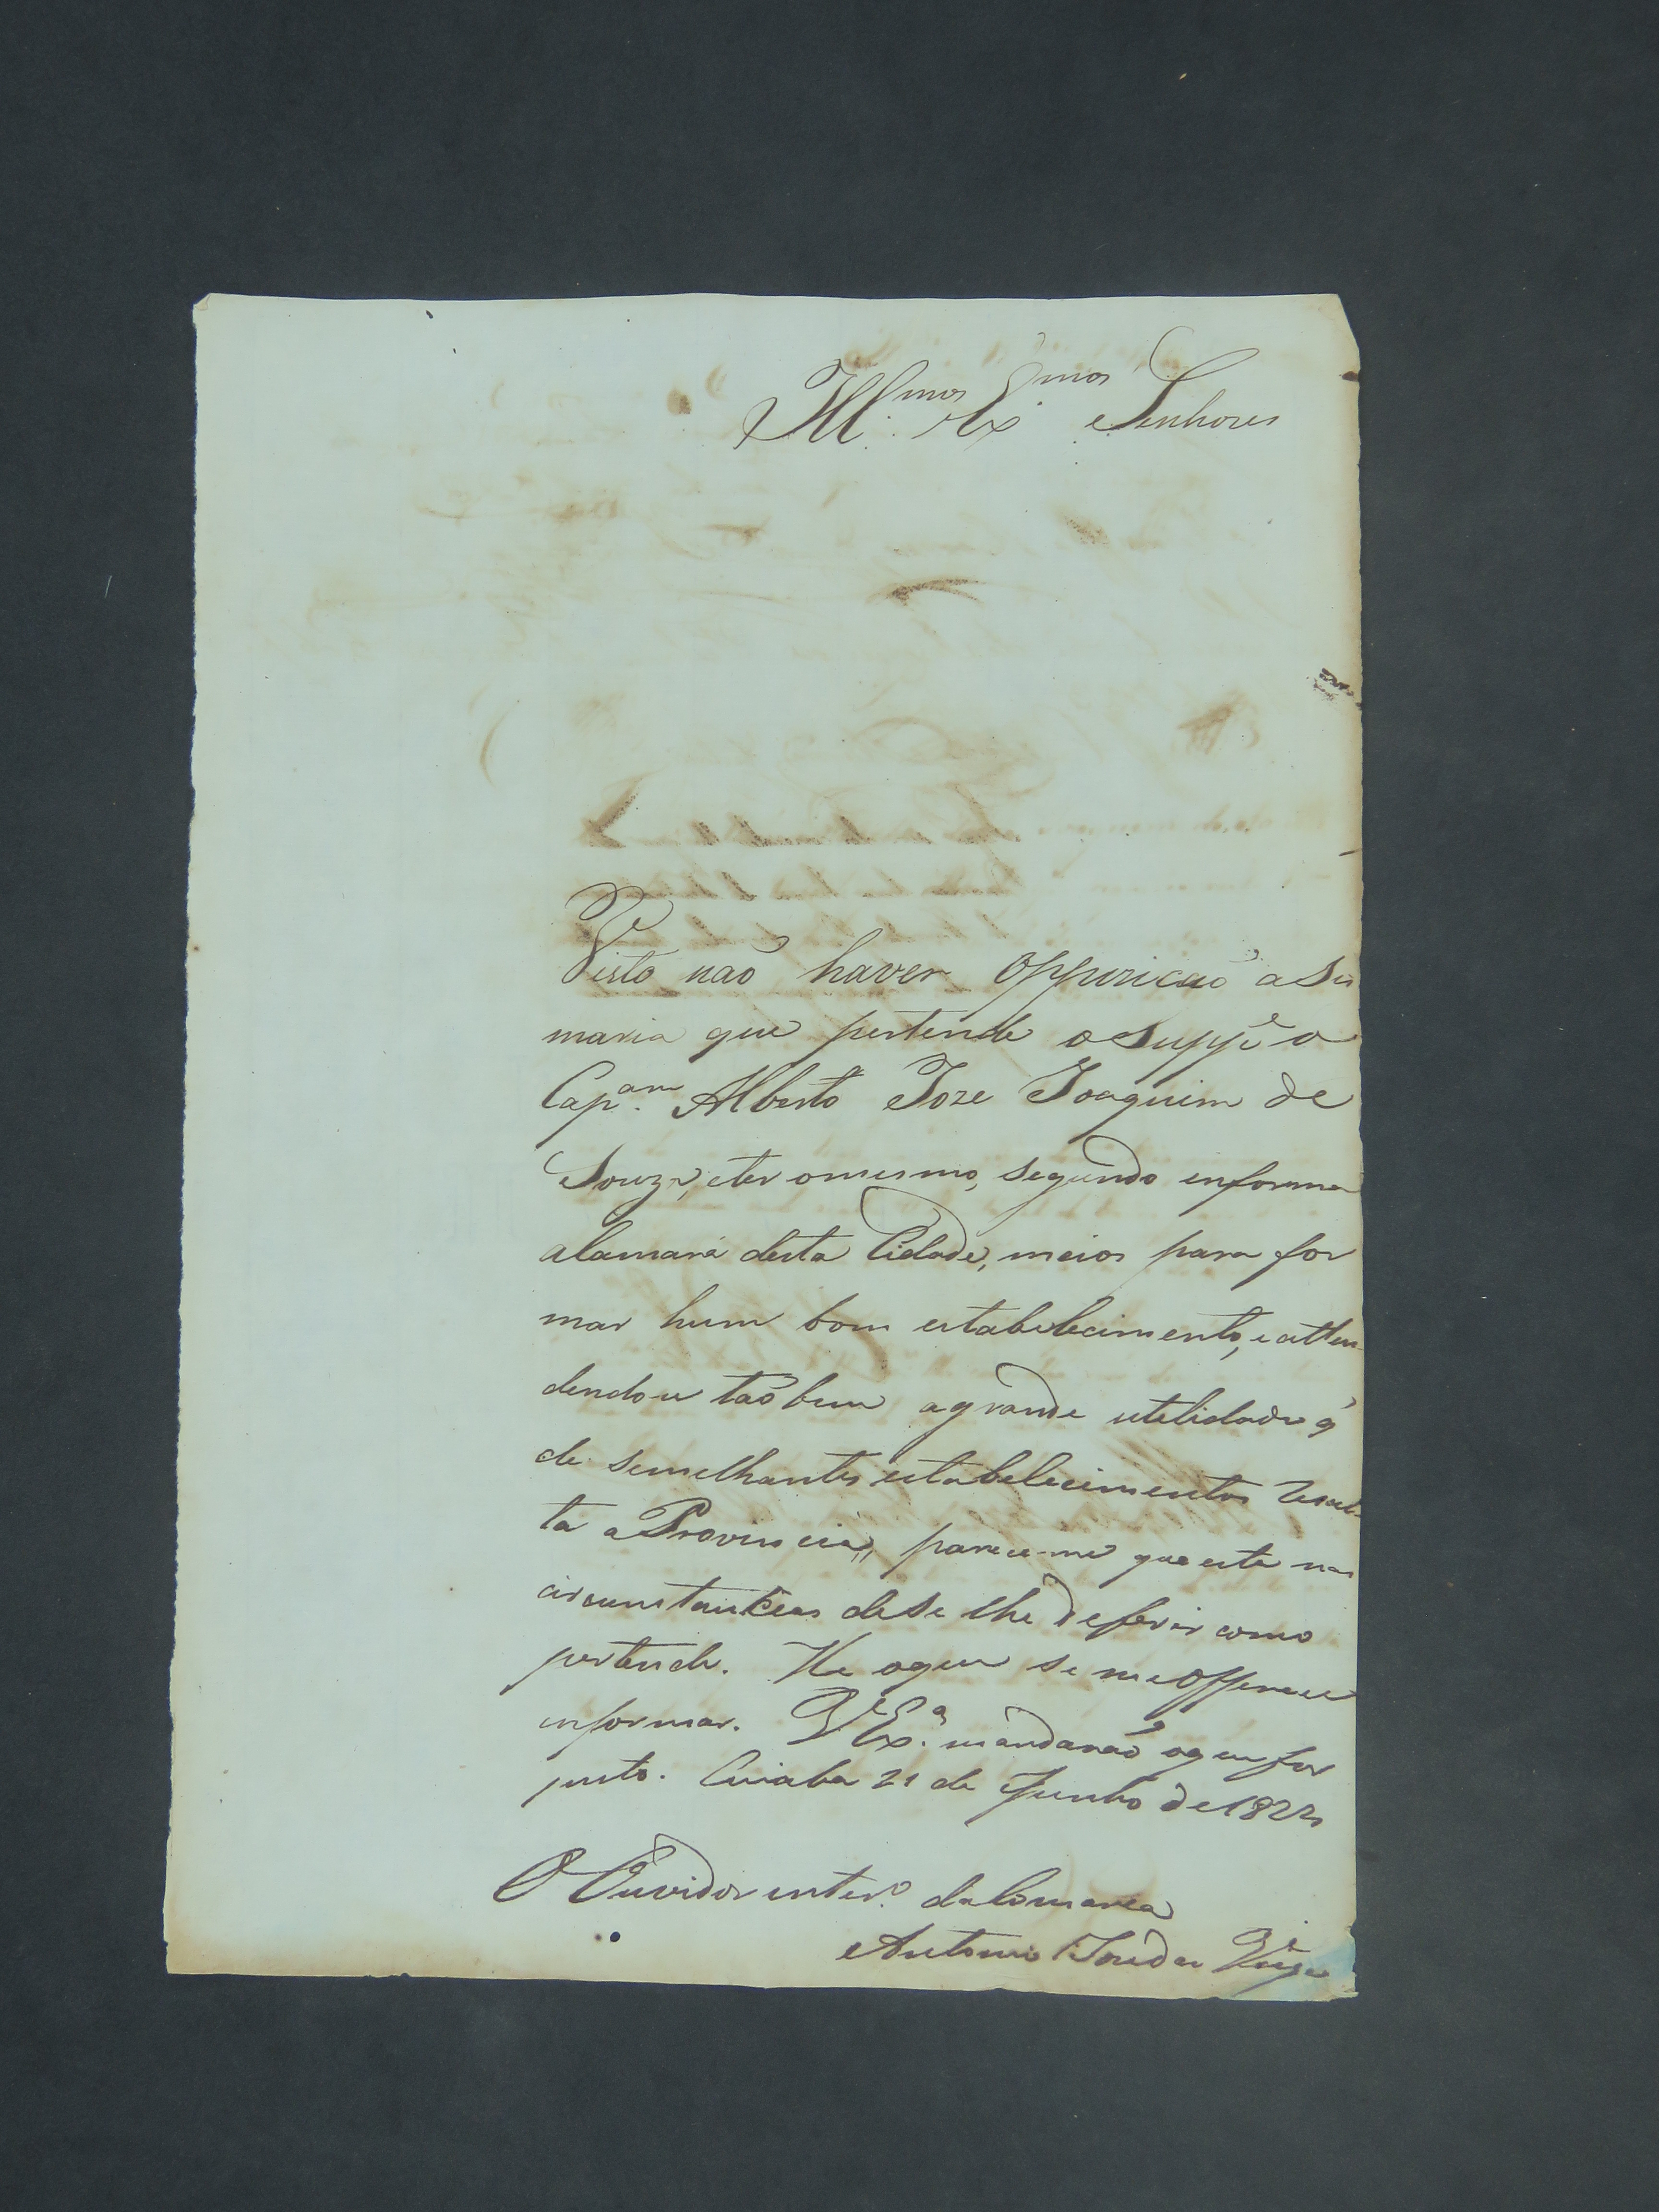 Ill.mos Ex.mos Senhores
Visto naõ haver opposicaõ a Sis
maria que pertende o Supp.e o
Cap.am Alberto Joze Joaquim de
Souza, eter omesmo, segundo informa
aCamara desta Cidade, meios para for
mar hum bom estabelecimento, e atten
dendo-se taõ bem agrande utelidade q'
de semelhantes estabelecimentos resul-
ta a Provincia, parece-me que esta nas
circunstancias dese lhe deferir como
pertende. He oque se me offerece
informar. V. Ex.as mandaraõ oque for
justo. Cuiaba 21 de Junho de 182
O Ouvidor inter.o daComarca
Antonio Joze da Veiga